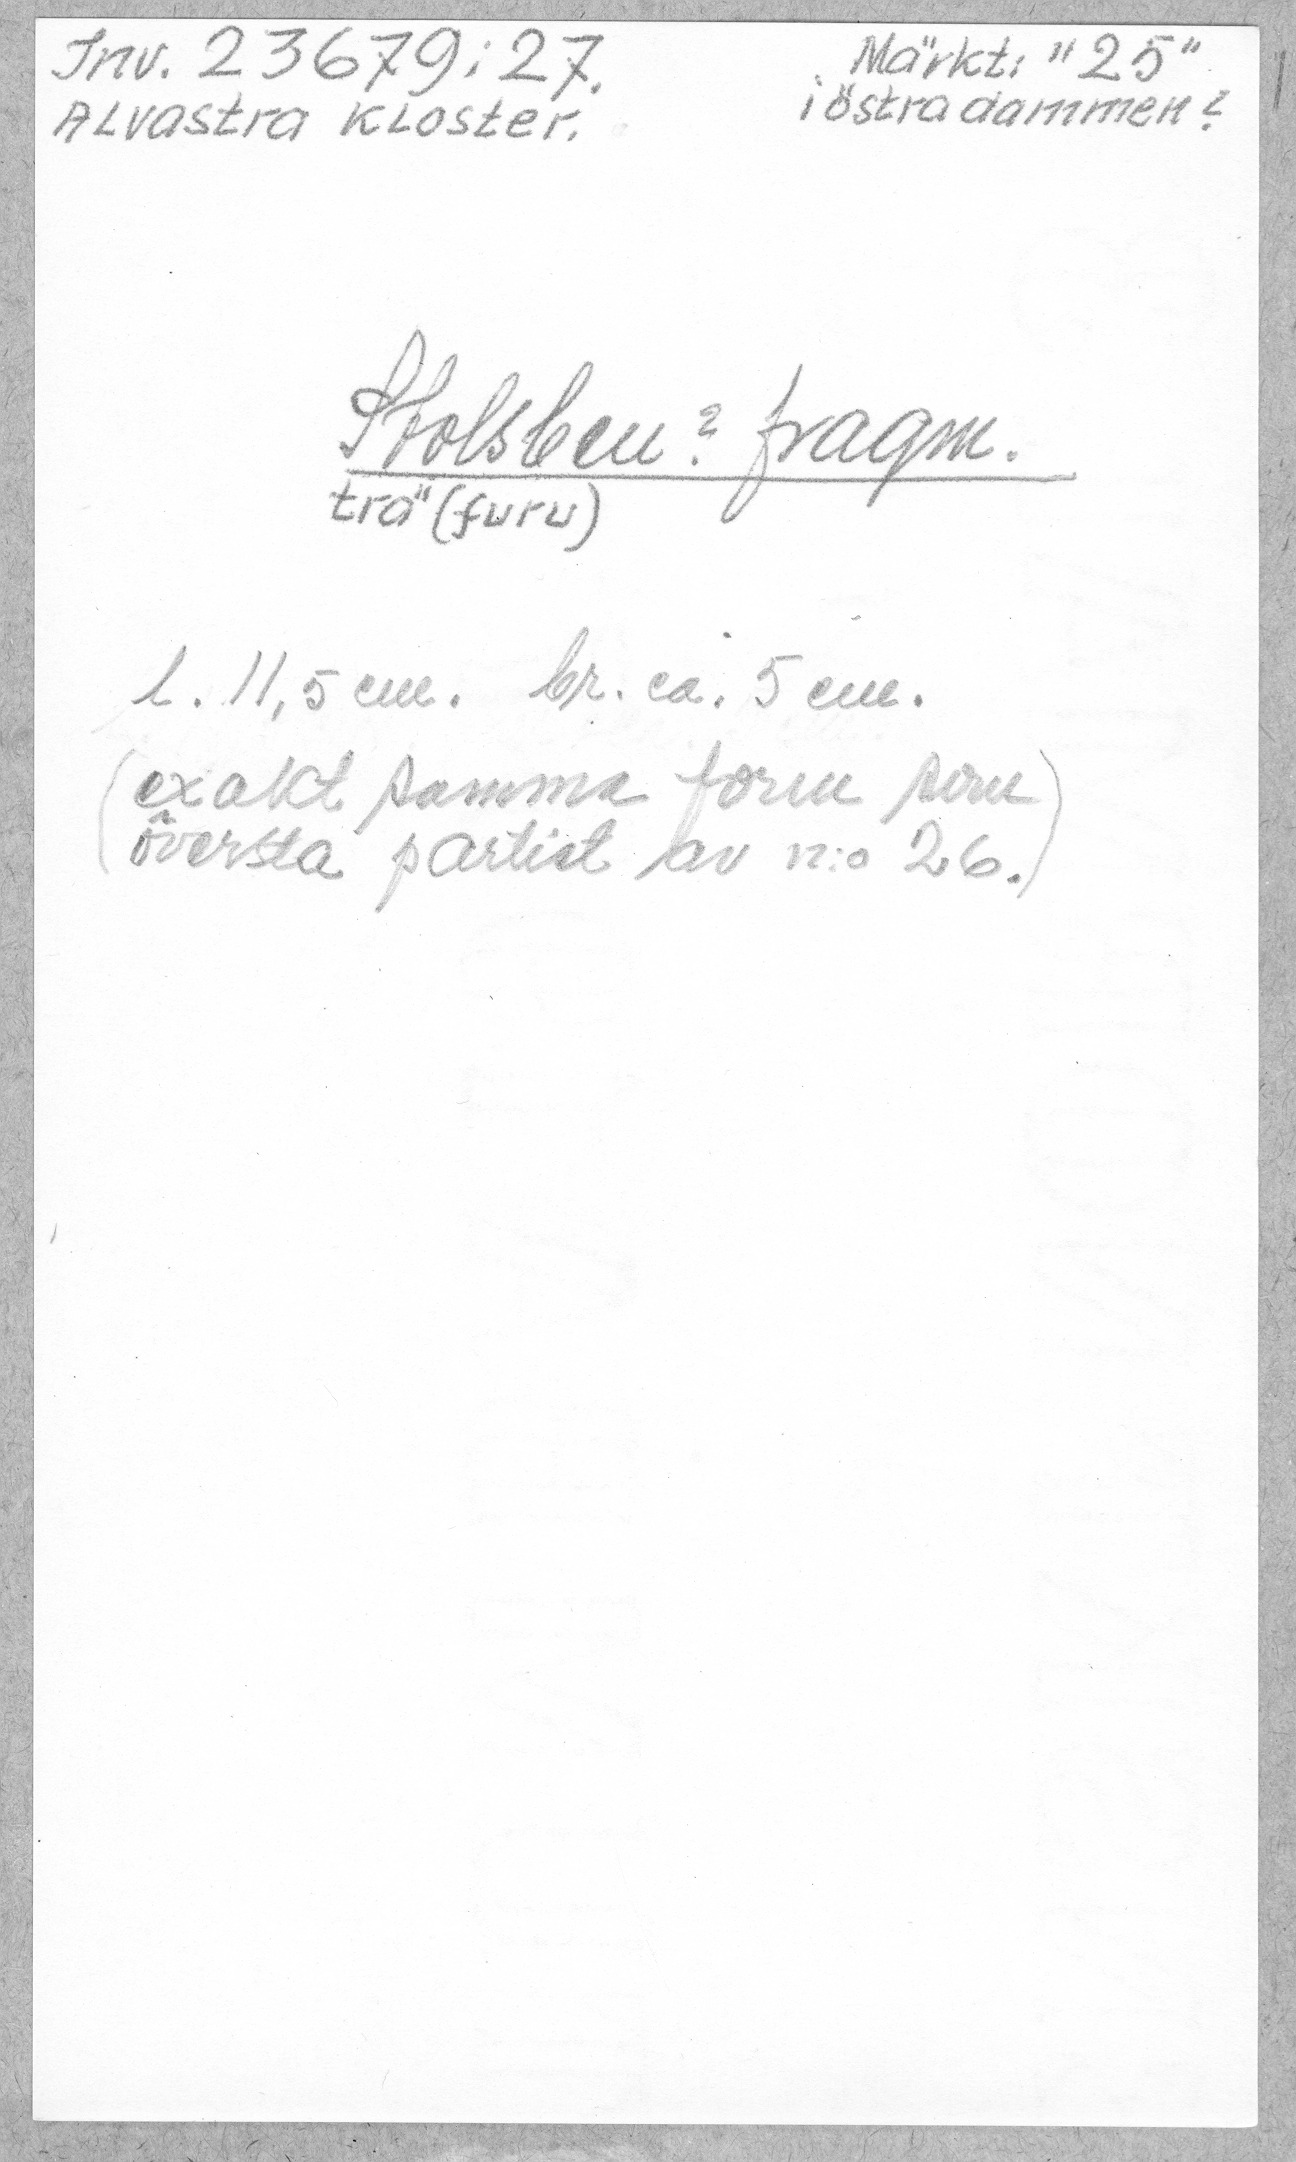 Inv. 23679:27.
Alvastra Kloster.
Märkt: "25"
i östra dammen?
Stolsben? fragm.
trä (furu)
l. 11,5 cm. br. ca. 5 cm.
(exakt samma form som
översta partiet av n:o 26.)